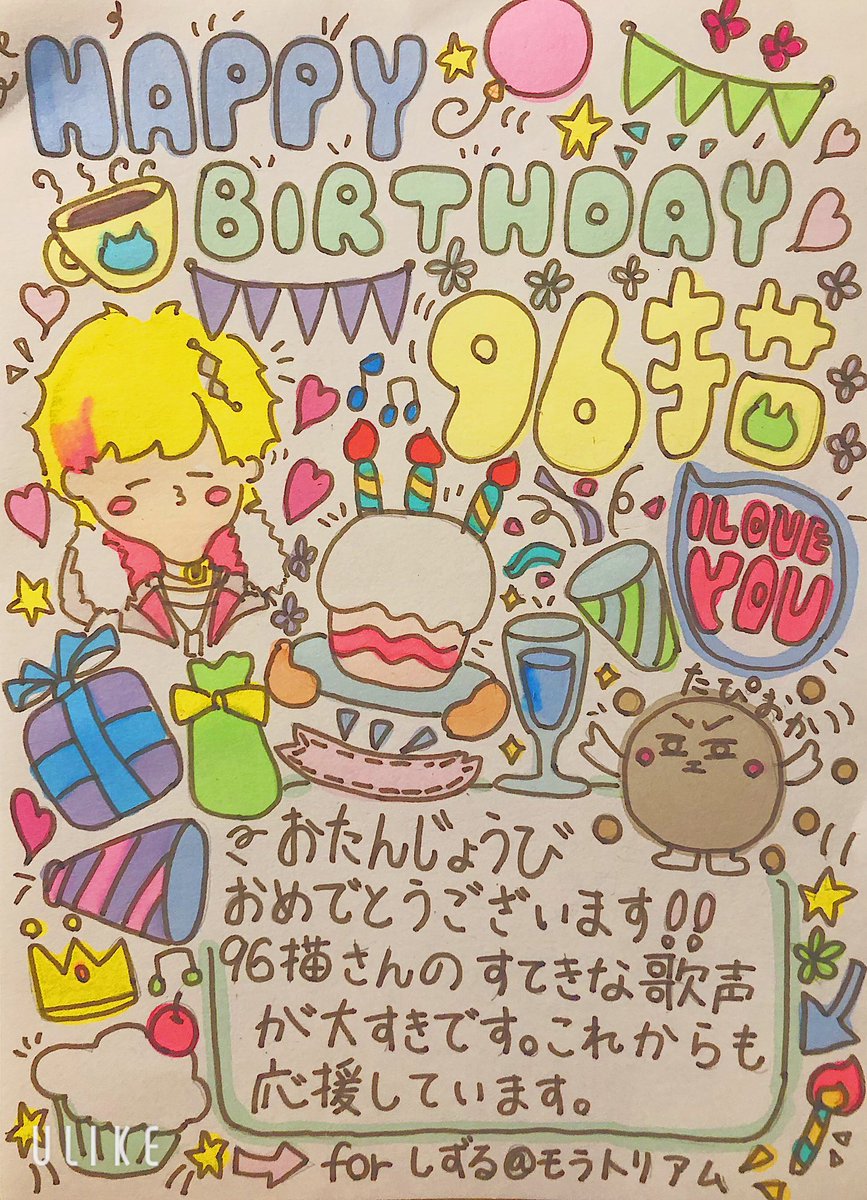 HAPPY
BIRTHDAY
96描
I LOVE
YOU
たぴおか
おたんじょうび
おめでとうございます!!
96描さんのすてきな歌声
が大すきです。これからも
応援しています。
for しずる@モラトリアム
ULIKE